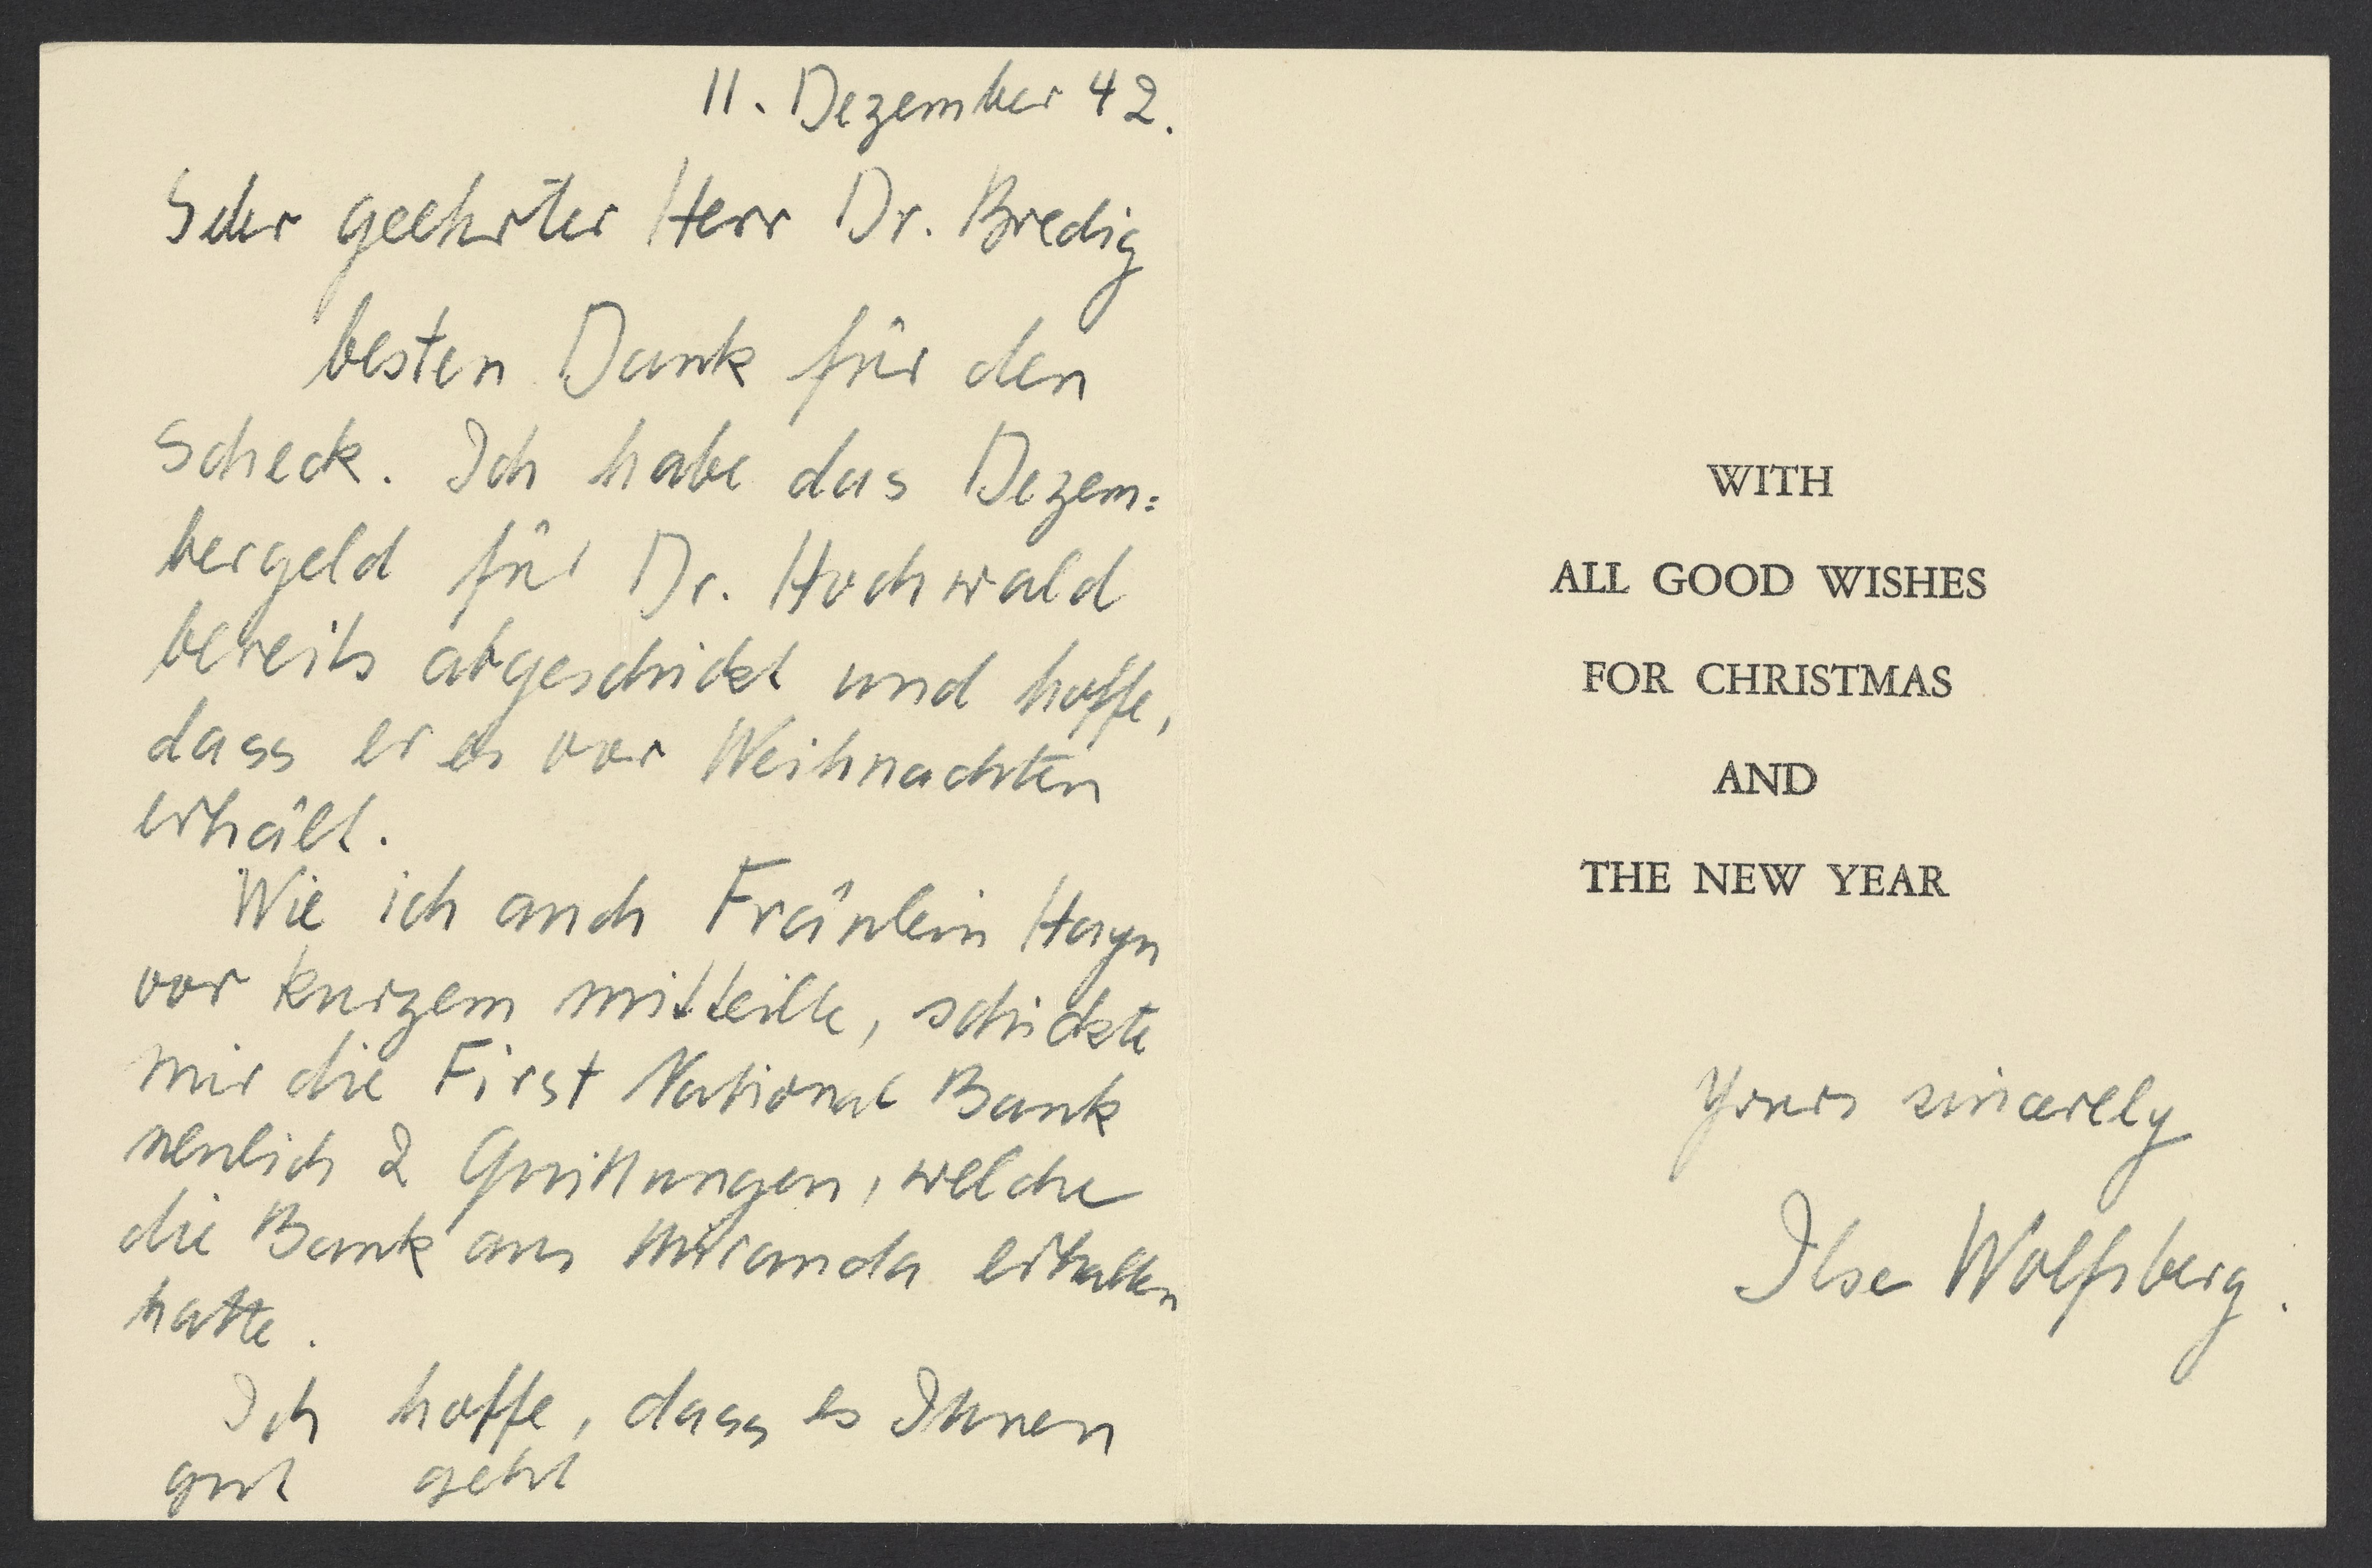 11. Dezember 42.
Sehr geehrter Herr Dr. Bredig
besten Dank für den
Scheck. Ich habe das Dezem=
bergeld für Dr. Hochwald
bereits abgeschickt und hoffe,
dass er es vor Weihnachten
erhält.
Wie ich auch Fräulein Hayn
vor kurzem mitteilte, schickte
mir die First National Bank
neulich 2 Quittungen, welche
die Bank aus Miranda erhalten
hatte.
Ich hoffe, dass es Ihnen
gut geht
WITH
ALL GOOD WISHES
FOR CHRISTMAS
AND
THE NEW YEAR
Yours sincerely
Ilse Wolfsberg.